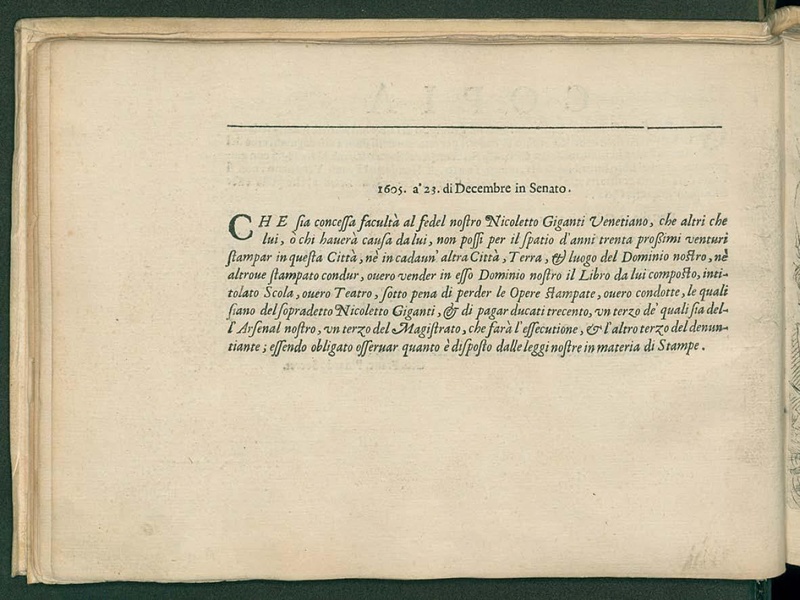 1605. a' 23. di Decembre in Senato.
CHE sia concessa facultà al fedel nostro Nicoletto Giganti Venetiano, che altri che
lui, ò chi hauerà causa da lui, non possi per il spatio d'anni trenta proßimi venturi
stampar in questa Città, nè in cadaun' altra Città, Terra, & luogo del Dominio nostro, nè
altroue stampato condur, ouero vender in esso Dominio nostro il Libro da lui composto, inti-
tolato Scola, ouero Teatro, sotto pena di perder le Opere stampate, ouero condotte, le quali
siano del sopradetto Nicoletto Giganti, & di pagar ducati trecento, vn terzo de' quali sia del-
l'Arsenal nostro, vn terzo del Magistrato, che farà l'essecutione, & l'altro terzo del denun-
tiante; essendo obligato osseruar quanto è disposto dalle leggi nostre in materia di Stampe.